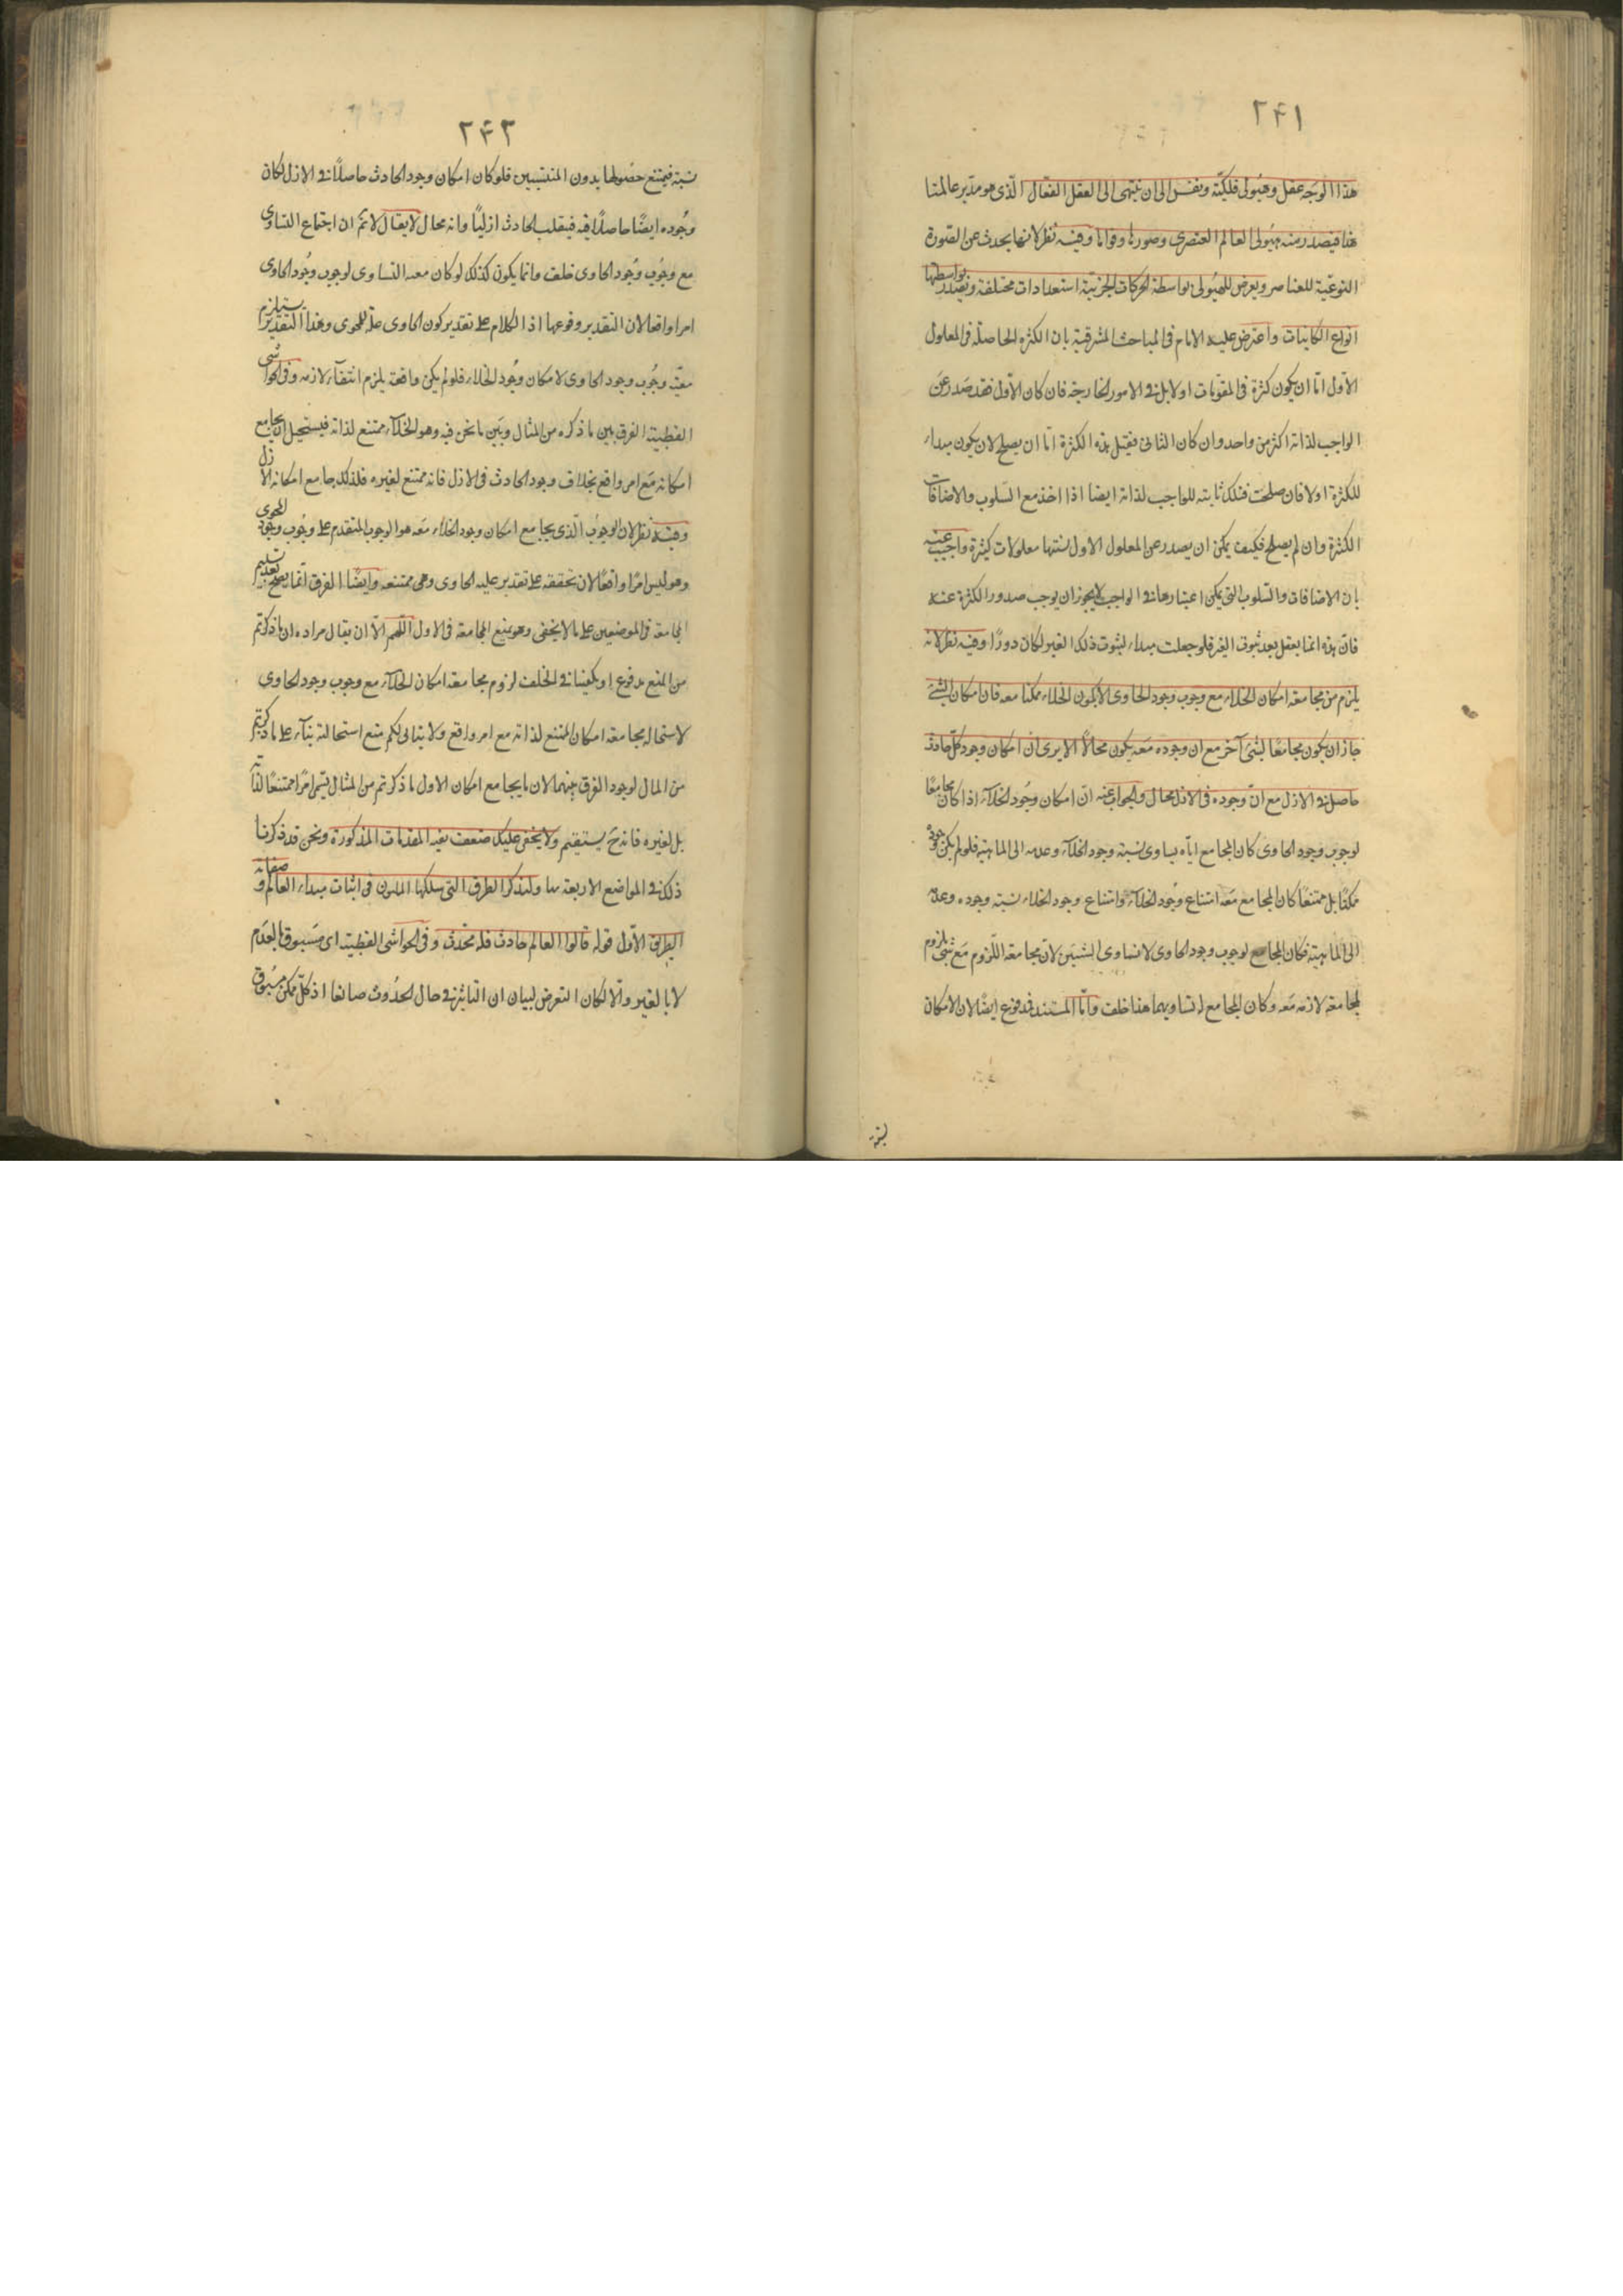 ٢۴١
هذا الوجه عقل وهيولى فلكية ونفس الى ان ينتهى الى العقل الفعال الذى هو مدبر عالمنا
هذا فيصدر منه هيولى العالم العنصرى وصورها وقواها وفيه نظر لانها يحدث عن الصورة
النوعية للعناصر ويعرض للهيولى بواسطة الحركات الجزئية استعدادات مختلفة ويصدر بواسطتها
انواع الكاينات واعترض عليه الامام فى المباحث المشرقية بان الكثرة الحاصلة فى المعلول
الاول اما ان يكون كثرة فى المقومات اولا بل فى الامور الخارجة فان كان الاول فقد صدر عن
الواجب لذاته اكثر من واحد وان كان الثانى فقيل هذه الكثرة اما ان يصلح لان يكون مبداء
للكثرة اولا فان صلحت فتلك ثابتة للواجب لذاته ايضا اذا اخذ مع السلوب والاضافات
الكثرة وان لم يصلح فكيف يمكن ان يصدر عن المعلول الاول بسببها معلولات كثيرة واجيب عنه
بان الاضافات والسلوب التى يمكن اعتبارها فى الواجب لا يجوز ان يوجب صدور الكثرة عنه
فان هذه انما يعقل بعد ثبوت الغير فلو جعلت مبداء لثبوت ذلك الغير لكان دورًا وفيه نظر لانه
يلزم من مجامعة امكان الخلاء مع وجوب وجود الحاوى ان يكون الخلاء ممكنا معه فان امكان الشئ
جاز ان يكون مجامعًا لشئ آخر مع ان وجوده معه يكون محالًا الا يرى ان امكان وجود كل حادث
حاصل فى الازل مع ان وجوده فى الازل محال والجواب عنه ان امكان وجود الخلآء اذا كان مجامعًا
لوجوب وجود الحاوى كان المجامع اياه يساوى نسبة وجود الخلآء وعدمه الى الماهية فلو لم يكن وجوده
ممكنًا بل ممتنعًا كان المجامع معه امتناع وجود الخلآء وامتناع وجود الخلاء نسبة وجوده وعدمه
الى الماهية فكان المجامع لوجوب وجود الحاوى لا تساوى النسبتين لان مجامعة اللزوم مع شئ يلزم
لمجامعة لازمه معه وكان المجامع له تساويهما هذا خلف واما المستند فمدفوع ايضًا لان الامكان
نسبة
٢۴٢
نسبة فيمتنع حصولها بدون المنتسبين فلو كان امكان وجود الحادث حاصلًا فى الازل لكان
وجوده ايضًا حاصلًا فيه فينقلب الحادث ازليًا وانه محال لا يقال لا نم ان اجتماع التساوى
مع وجوب وجود الحاوى خلف وانما يكون كذلك لو كان معه التساوى لوجوب وجود الحاوى
امرا واقعا لان التقدير وقوعها اذ الكلام على تقدير كون الحاوى علة للمحوى وهذا التقدير يستلزم
معية وجوب وجود الحاوى لامكان وجود الخلاء فلو لم يكن واقعة يلزم انتفآء لازمه وفى الحواشى
القطبية الفرق بين ما ذكره من المثال وبين ما نحن فيه وهو الخلآء ممتنع لذاته فيستحيل ان يجامع
امكانه مع امر واقع بخلاف وجود الحادث فى الازل فانه ممتنع لغيره فلذلك جامع امكانه الازل
وفيه نظر لان الوجوب الذى يجامع امكان وجود الخلاء معه هو الوجوب المتقدم على وجوب وجود المحوى
وهو ليس امرًا واقعًا لان تحققه على تقدير علية الحاوى وهى ممتنعه وايضًا الفرق انما يصح بعد تسليم
المجامعة فى الموضعين على ما لا يخفى وهو يمنع المجامعة فى الاول اللهم الا ان يقال مراده ان ما ذكرتم
من المنع مدفوع او يكفينا فى الخلف لزوم مجامعة امكان الخلآء مع وجوب وجود الحاوى
لاستحالة مجامعة امكان الممتنع لذاته مع امر واقع ولا يتاتى لكم منع استحالته بنآء على ما ذكرتم
من المثال لوجود الفرق بينهما لان ما يجامع امكان الاول ما ذكرتم من المثال ليس امرًا ممتنعًا لذاته
بل لغيره فانه ح يستقيم ولا يخفى عليك ضعف بقية المقدمات المذكورة ونحن قد ذكرنا
ذلك فى المواضع الاربعة ولنذكر الطرق التى سلكها الملون فى اثبات مبداء العالم وصفاته
الطريق الاول قوله قالوا العالم حادث فله محدث وفى الحواشى القطبية اى مسبوق بالعدم
لا بالغير والا لكان التعرض لبيان ان التاثير فى حال الحدوث ضائعا اذ كل ممكن مسبوق